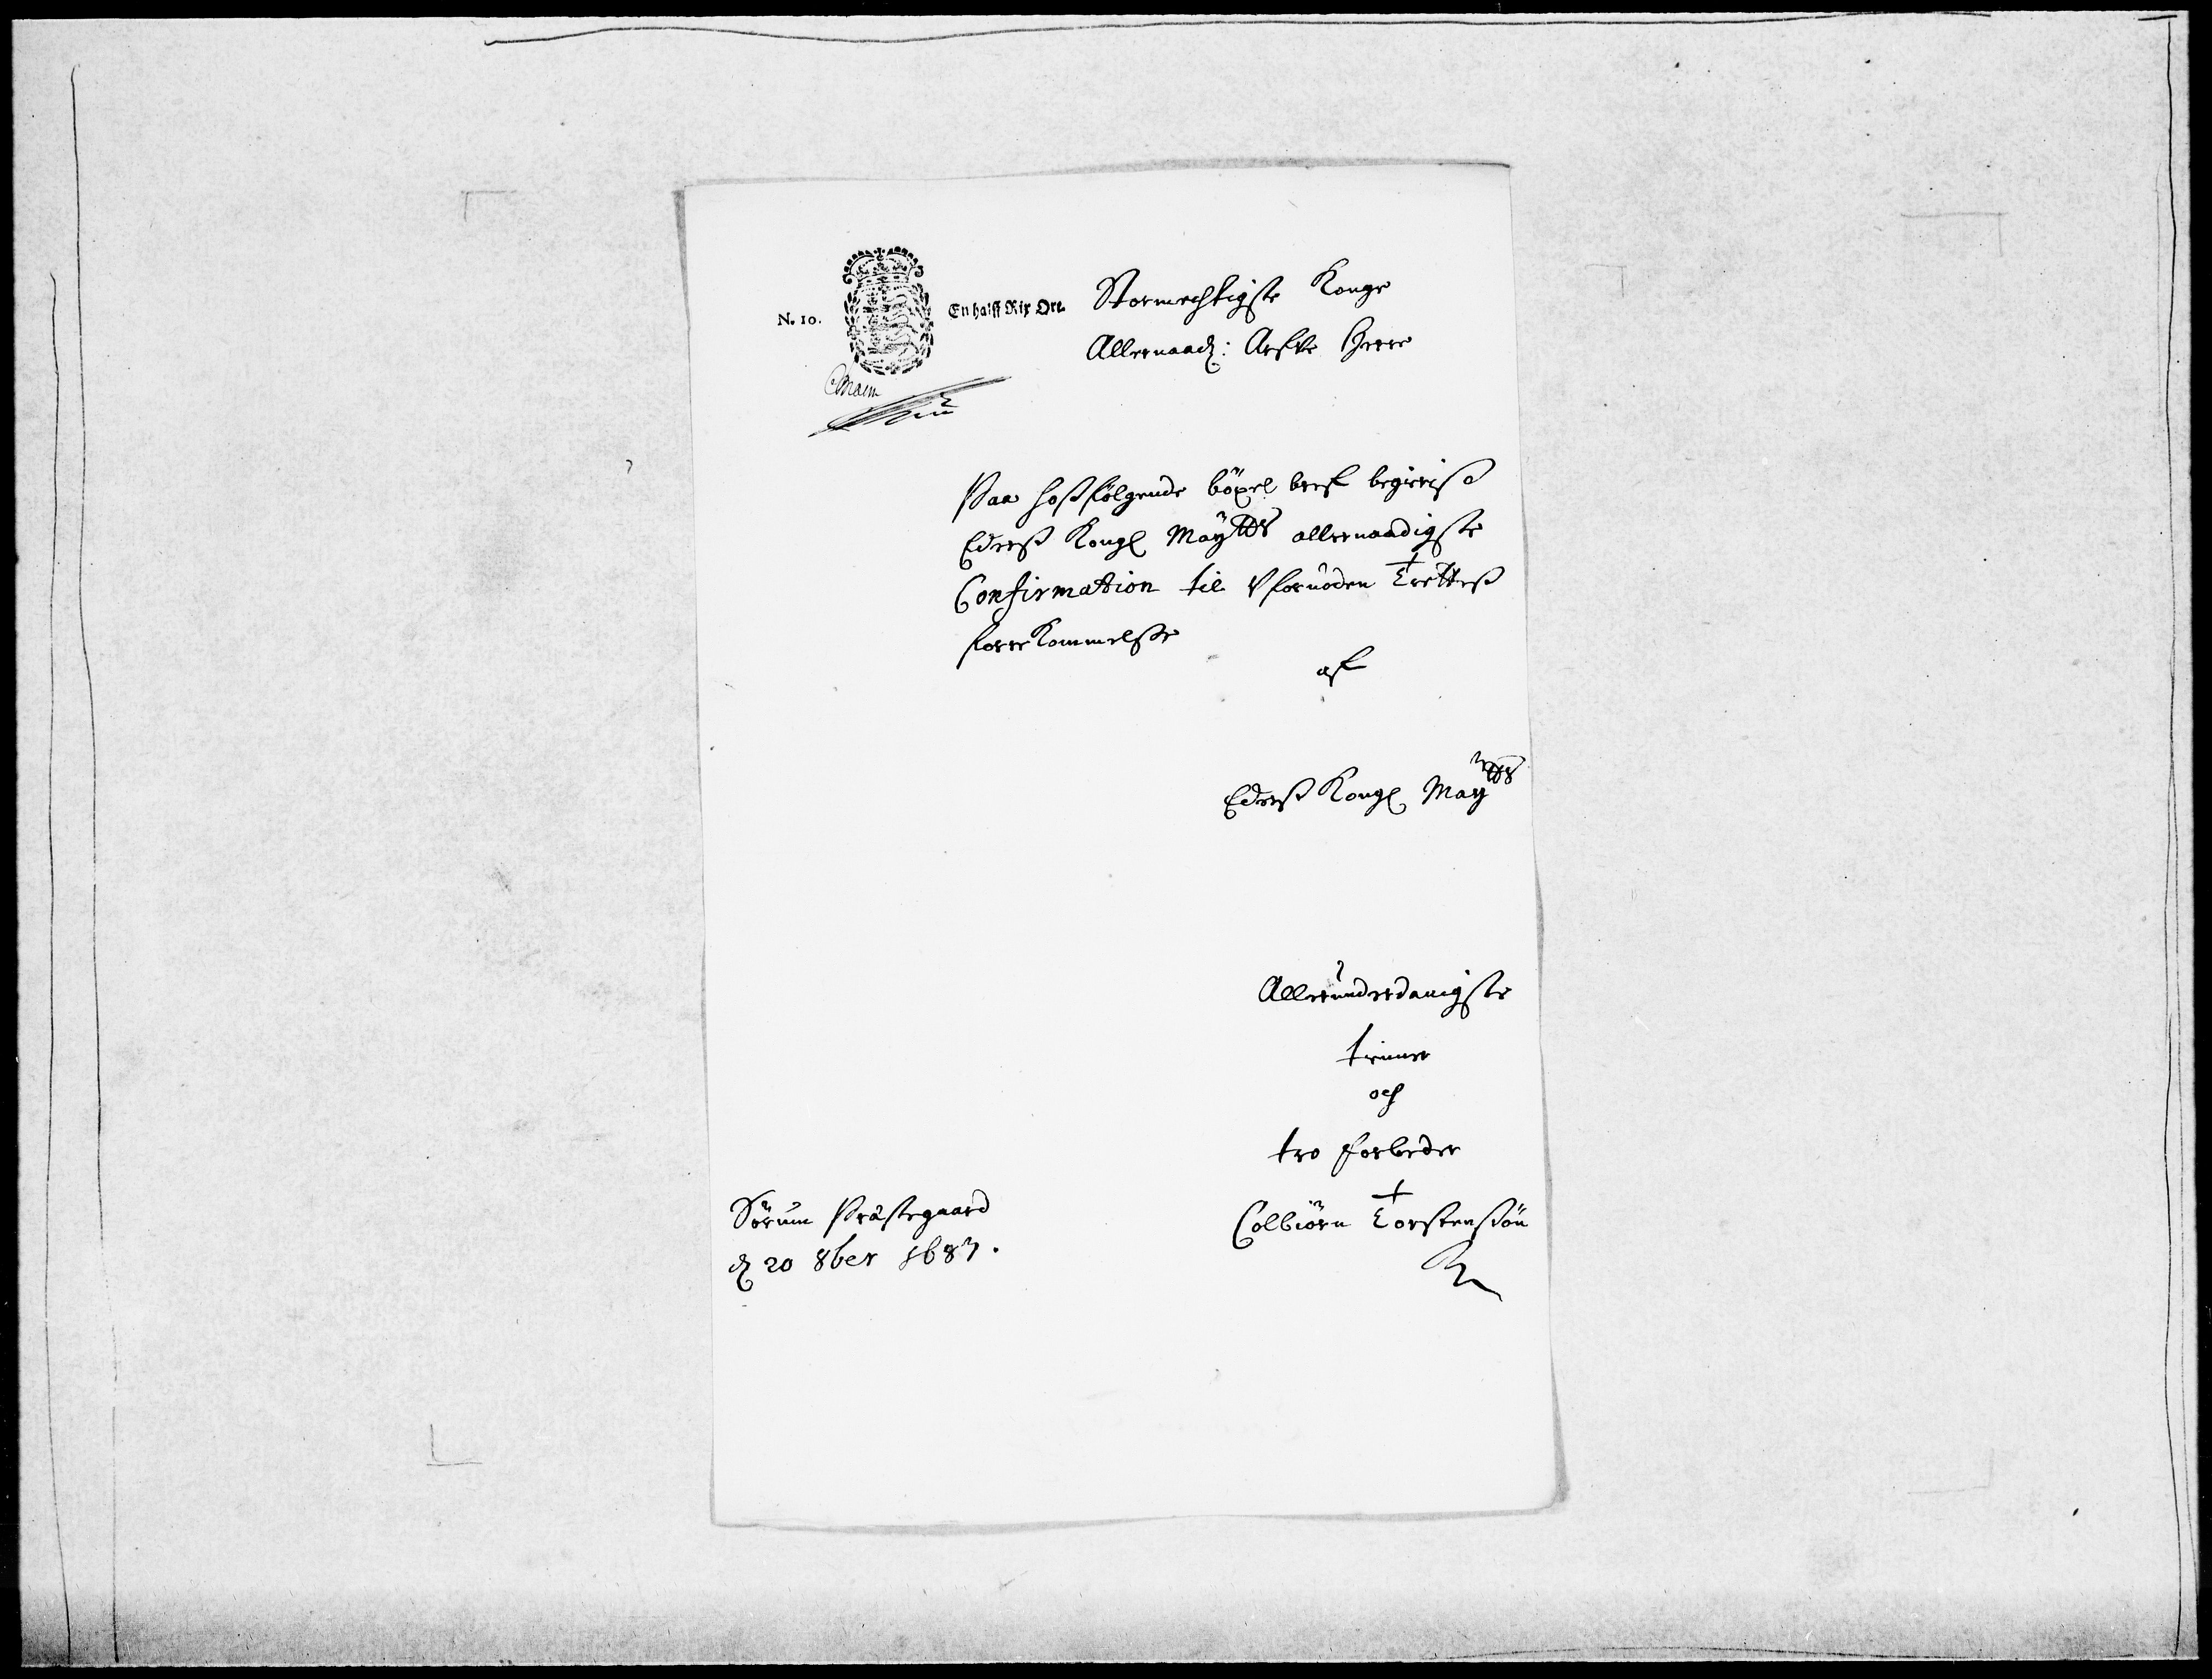 N. 10.
En halff Rix Ort.
Stormechtigste Konge
Allernaad: Arfve Herre
Paa hossfölgende böxel bref begieriss
Ederss Kongl May:tts allernaadigste
Confirmation til Vfornöden Trettess
forre Kommelsse
af
Ederss Kongl May:tts
Allerunderdanigste
tienner
och
tro forbeder
Colbiörn Torstenssön
Sörum Præstegaard
d 20 8ber 1687.